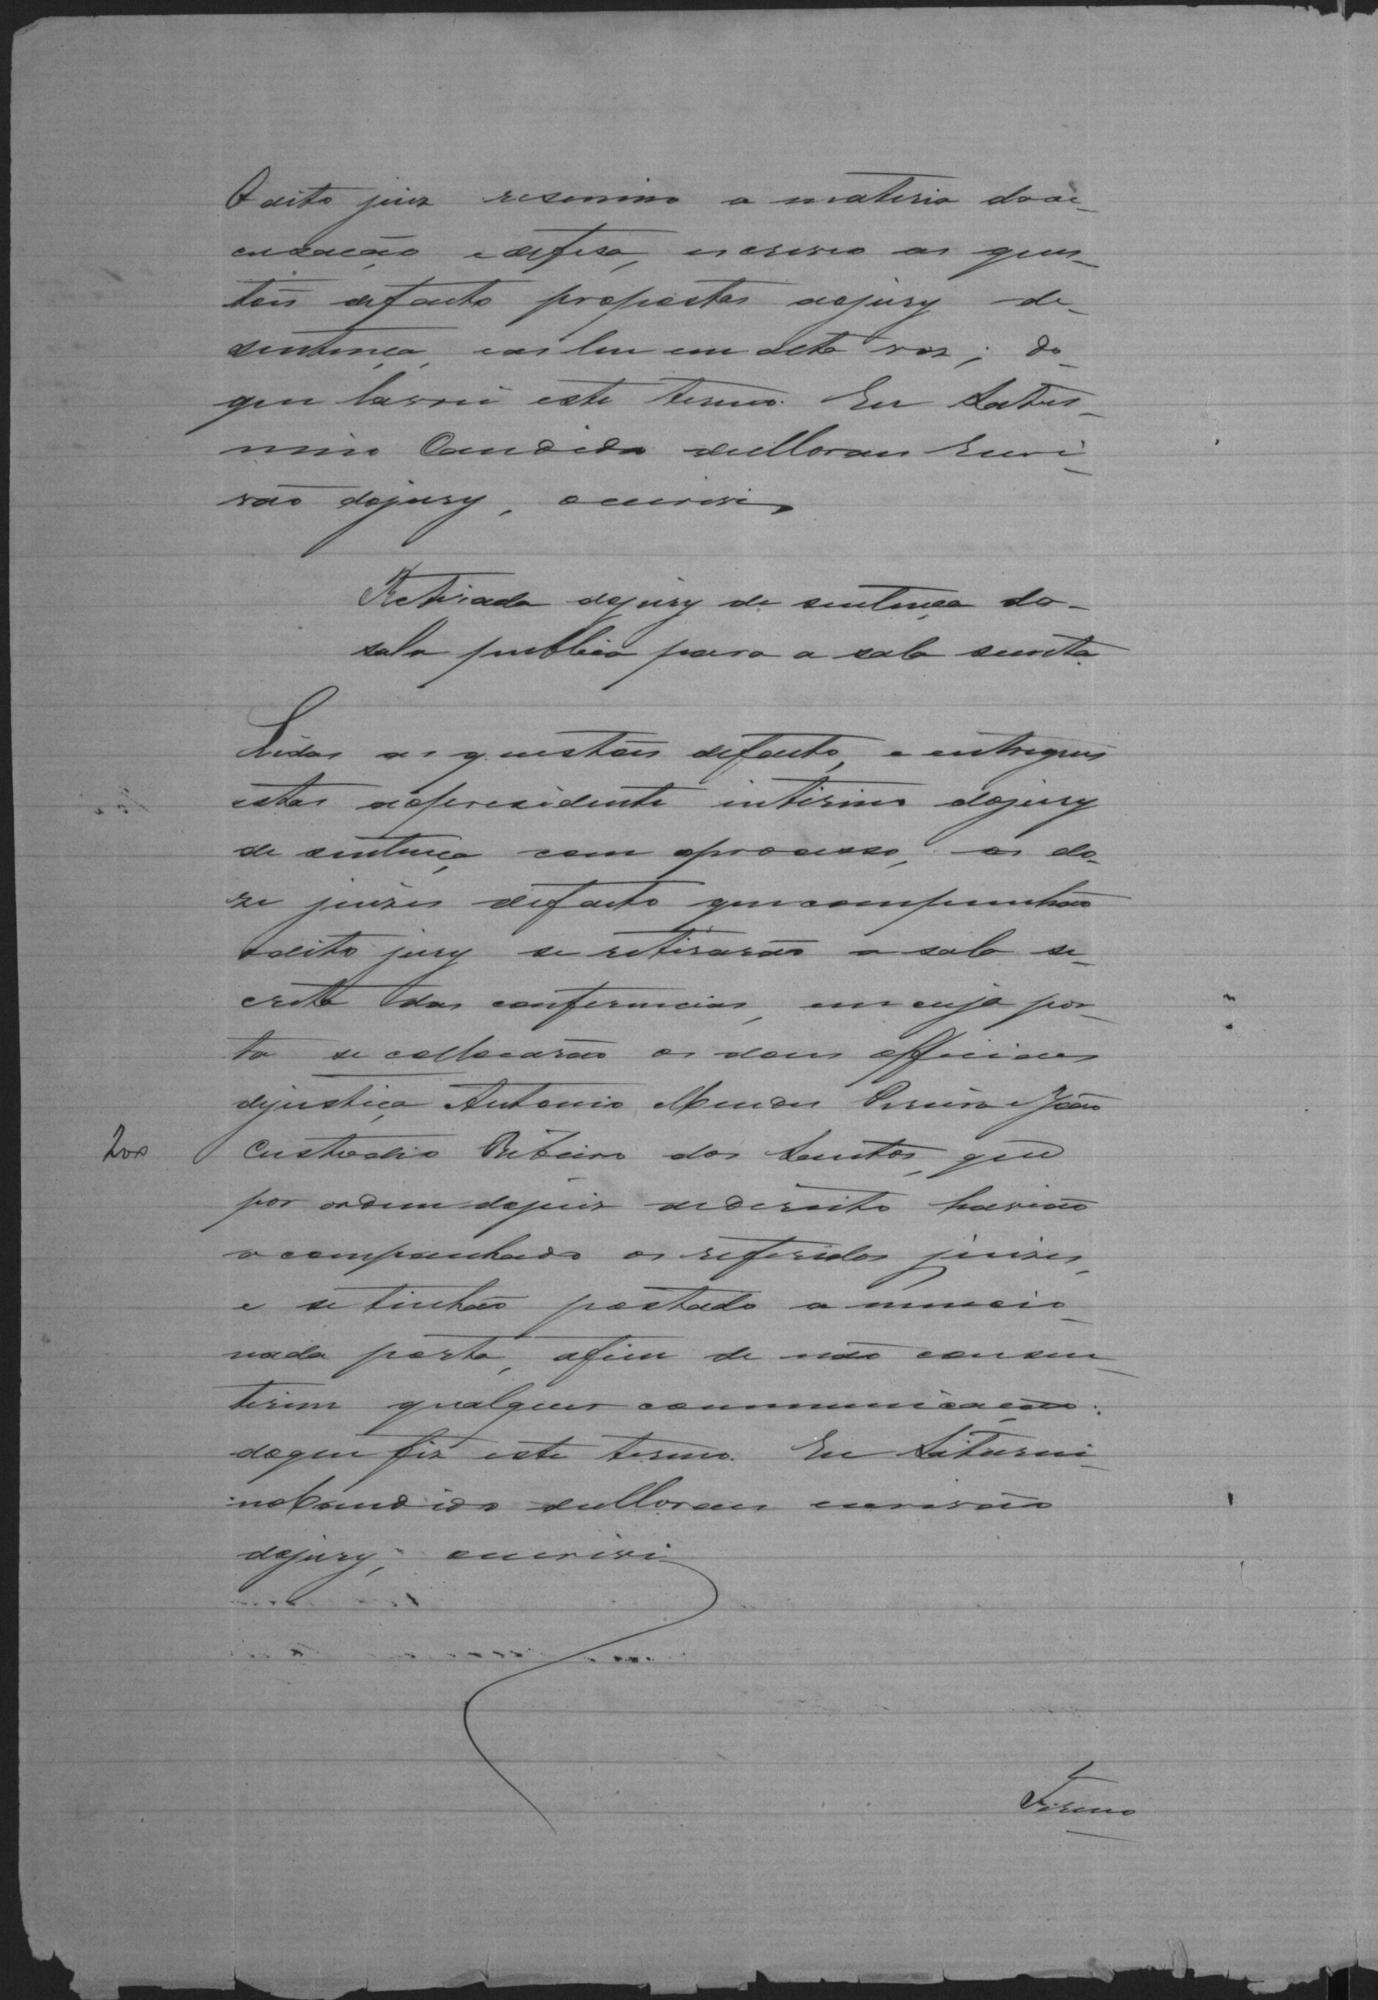 O dito juiz resumino a materia da ac-
cusação e defesa, escreveo as ques-
tões de facto propostas ao jury de
sentença, e as leu em alta voz; do
que lavrei este termo. Eu Satur-
nino Candido de Moraes Escri-
vão do jury, o escrivi
Retirada do jury de sentença da
sala publica para a sala secreta.
Lidas as questões de facto, e entregues
estas ao presidente interino do jury
de sentença com o processo, os do-
ze juizes de facto que compunhão
o dito jury se retirarão a sala se-
creta das conferencias, em cuja por-
ta se collocarão os dous officiaes
de justiça Antonio Mendes Pereira e João
200 Custodio Ribeiro dos Santos, que
por ordem do juiz de direito havião
acompanhado os referidos juizes,
e se tinhão postado a mencio-
nada porta, afim de não consen-
tirem qualquer communicação:
do que fiz este termo. Eu Saturni-
no Candido de Moraes escrivão
do jury, o escrivi
Termo